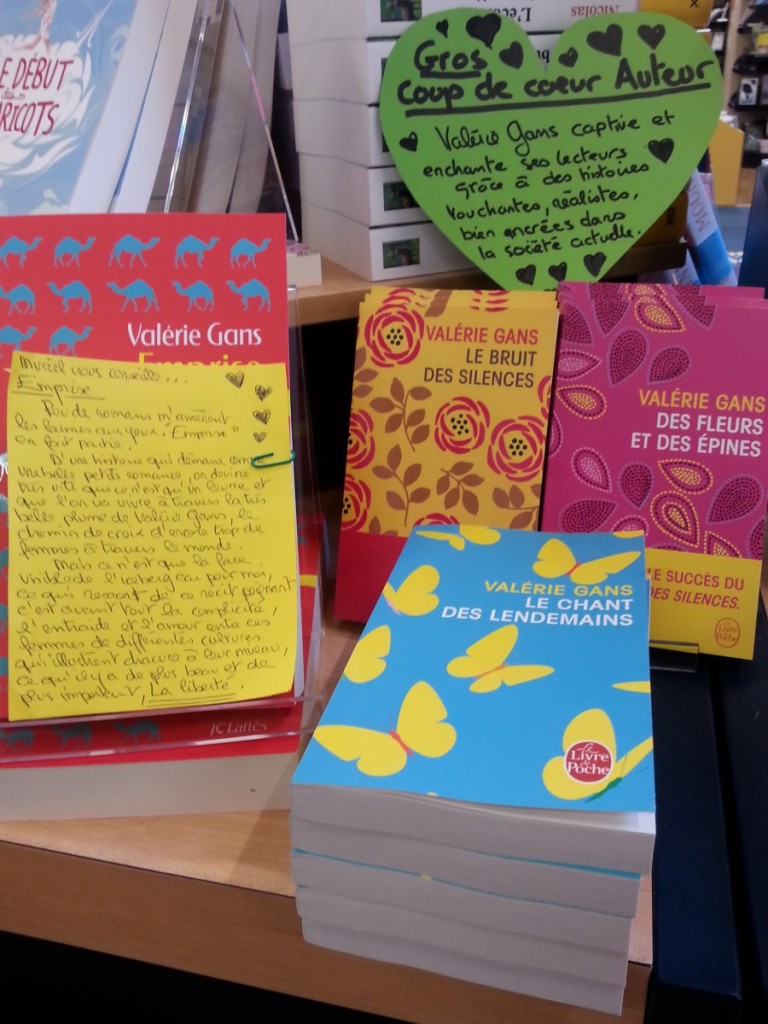 Nicolas
L'eco
LE DÉBUT
des
ARICOTS
Gros
Coup de coeur Auteur
Valérie Gans captive et
enchante ses lecteurs
grâce à des histoires
touchantes, réalistes,
bien encrées dans
la société actuelle.
Valérie Gans
Emprise
Muriel vous conseille...
Emprise
Peu de romans m'amènent
les larmes aux yeux. "Emprise"
en fait partie.
D'une histoire qui démarre comme
une belle petite romance, on devine
très vite que ce n'est qu'un leurre et
que l'on va vivre à travers la très
belle plume de Valérie Gans, le
chemin de croix d'encore trop de
femmes à travers le monde.
Mais ce n'est que la face
visible de l'iceberg car pour moi,
ce qui ressort de ce récit poignant
c'est avant tout la complicité,
l'entraide et l'amour entre ces
femmes de différentes cultures
qui illustrent chacune à leur niveau,
ce qu'il y a de plus beau et de
plus important, La liberté.
JC Lattès
VALÉRIE GANS
LE BRUIT
DES SILENCES
VALÉRIE GANS
DES FLEURS
ET DES ÉPINES
LE SUCCÈS DU
DES SILENCES.
Le Livre de Poche
VALÉRIE GANS
LE CHANT
DES LENDEMAINS
Le
Livre
de
Poche